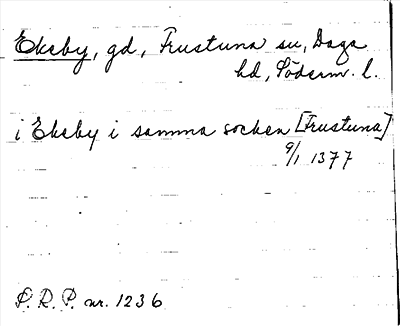 Ekeby, gd, Frustuna sn, Daga
hd, Söderm. l.
i Ekeby i samma socken [Frustuna]
9/1 1377
S. R. P. nr. 1236